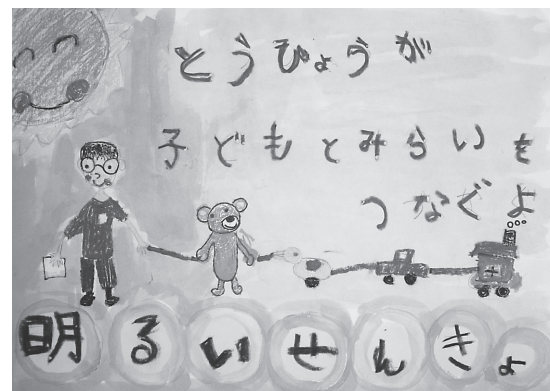 とうひょうが
子どもとみらいを
つなぐよ
明るいせんきょ